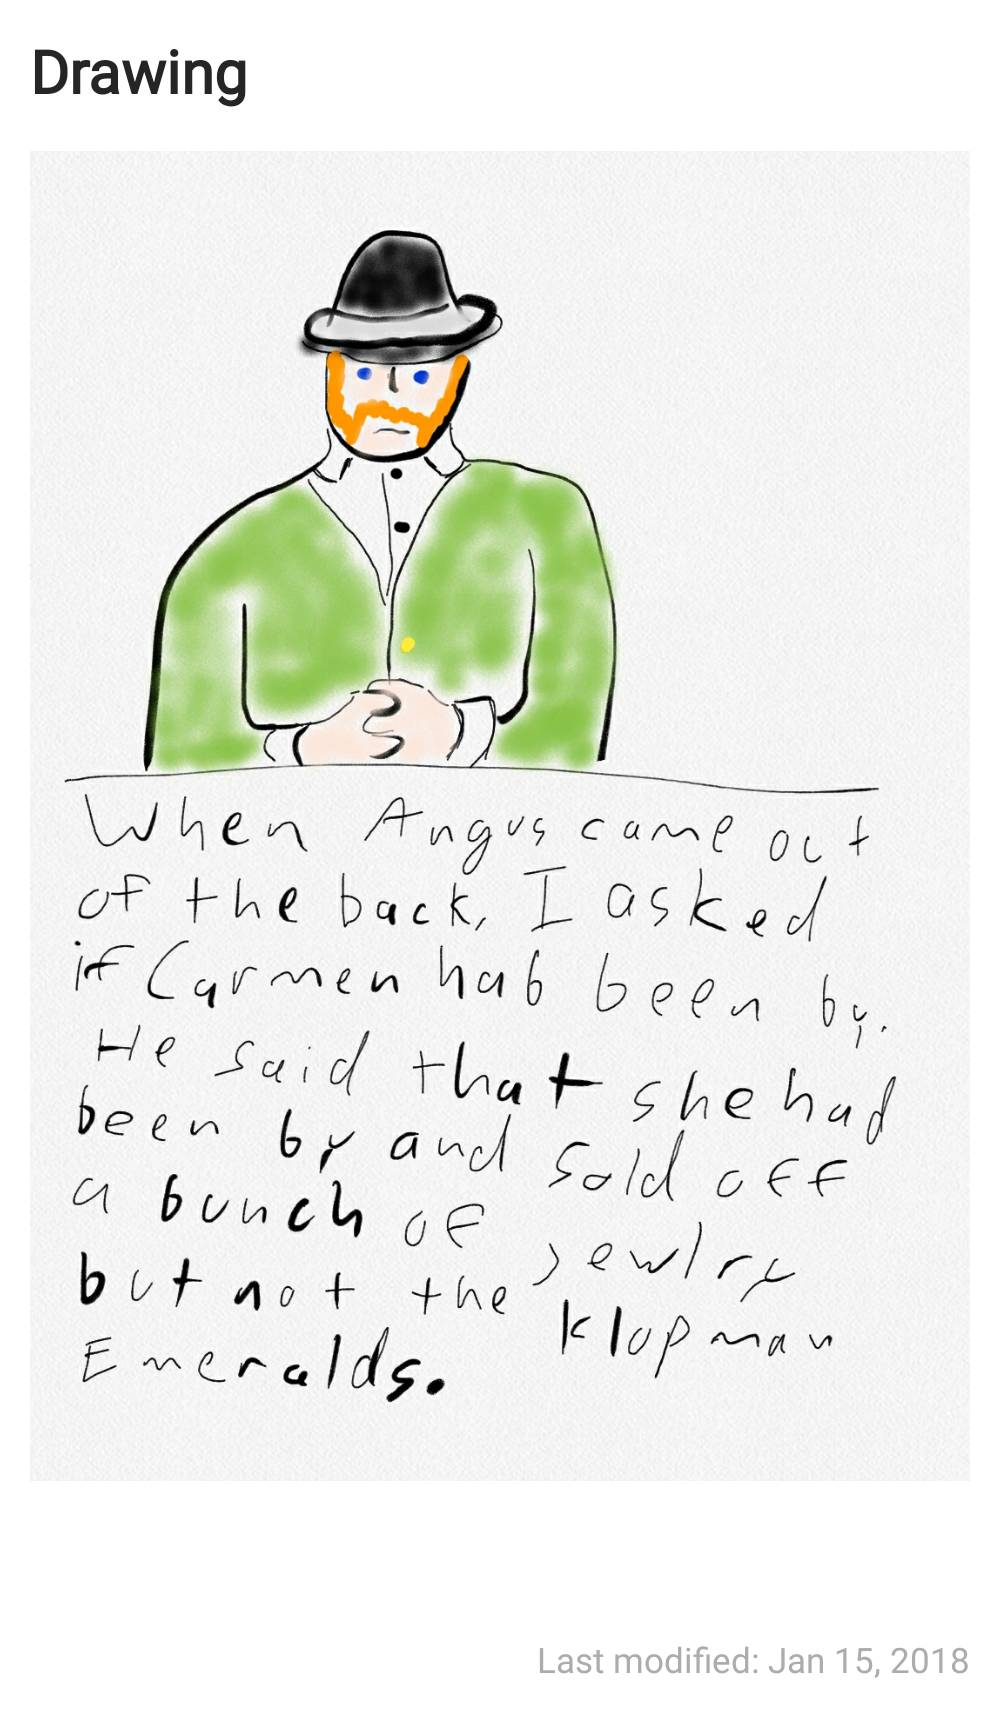 Drawing
When Angus came out
of the back, I asked
if Carmen hab been by.
He said that she had
been by and sold off
a bunch of jewlry
but not the Klopman
Emeralds.
Last modified: Jan 15, 2018